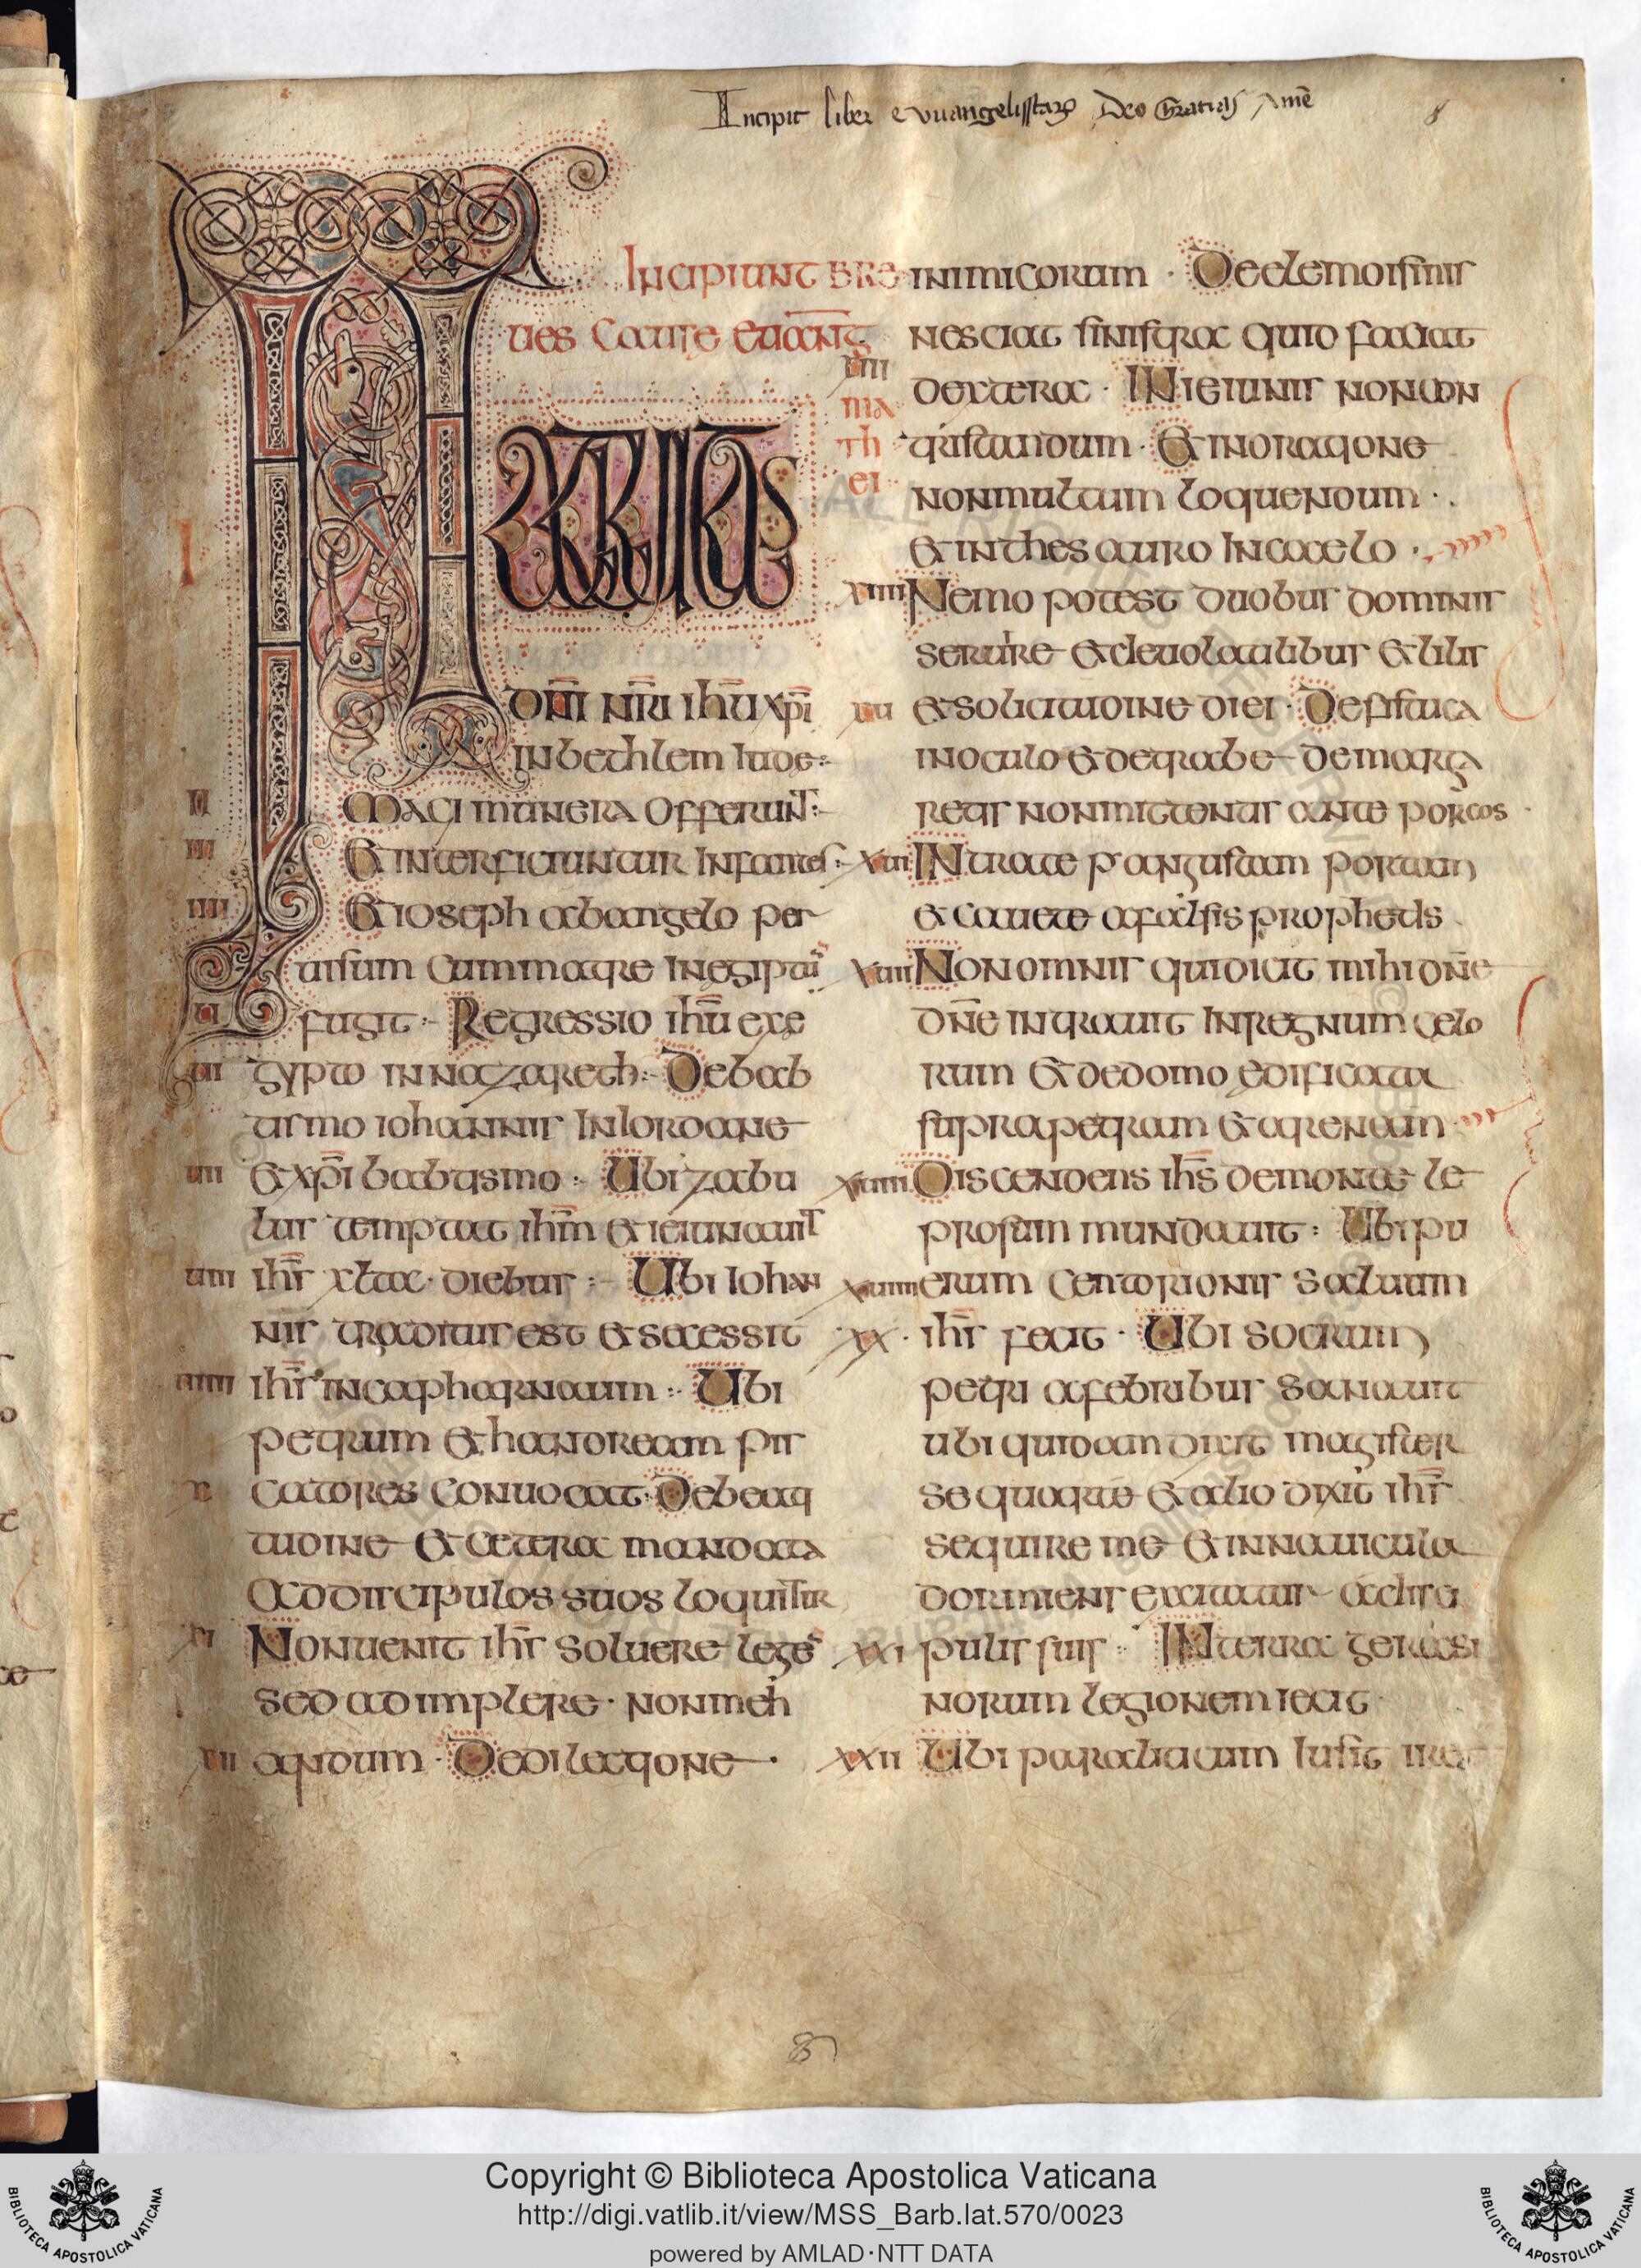 Incipit liber evuangelistaꝝ Deo Gratias Amē
8
Incipiunt bre
ues Cause euang̅
I
Natiuitas
dn̄i nr̄i ihū xp̄i
in bethlem iude
II
Magi munera offerunt
III
Et interficiuntur infantes
IIII
Et ioseph ab angelo per
uisum cum matre in egiptū
U
fugit Regressio ihū ex e
UI
gypto in nazareth De bab
tismo iohannis in iordane
UII
et xp̄i babtismo Ubi zabu
lus temptat ihm̄ et ieiunauit
UIII
ihs̄ xlta diebus Ubi iohan
nis traditus est et secessit
UIIII
ihs̄ in capharnaum Ubi
petrum et handream pis
X
catores conuocat De beati
tudine et cetera mandata
ad discipulos suos loquitur
XI
Non uenit ihs̄ soluere legē
sed adimplere non meh
XII
andum De dilectione
inimicorum De elemoisinis
nesciat sinistra quid faciat
XIII
dextera In ieiuniis non con
ma
th
ei
tristandum Et in oratione
non multum loquendum
et in thesauro in caelo
XIIII
Nemo potest duobus dominis
seruire et de uolatilibus et liliis
XU
et solicitudine diei De fistuca
in oculo et de trabe de marga
retis non mittentis ante porcos
XUI
Intrate p angustam portam
et cauete a falsis prophetis
XUII
Non omnis qui dicit mihi dn̄e
dn̄e intrauit in regnum celo
rum et de domo edificata
supra petram et arenam
XUIII
Discendens ihs̄ de monte le
prosum mundauit Ubi pu
XUIIII
erum centorionis saluum
XX
ihs̄ fecit Ubi socrum
petri a febribus sanauit
ubi quidam dixit magister
sequar te et alio dixit ihs̄
sequire me et in nauicula
dormiens excitatur a disci
XXI
pulis suis In terra gerasi
norum legionem iecit
XXII
Ubi paraliticum iusit
8
Copyright © Biblioteca Apostolica Vaticana
http://digi.vatlib.it/view/MSS_Barb.lat.570/0023
powered by AMLAD·NTT DATA
BIBLIOTECA APOSTOLICA VATICANA
BIBLIOTECA APOSTOLICA VATICANA